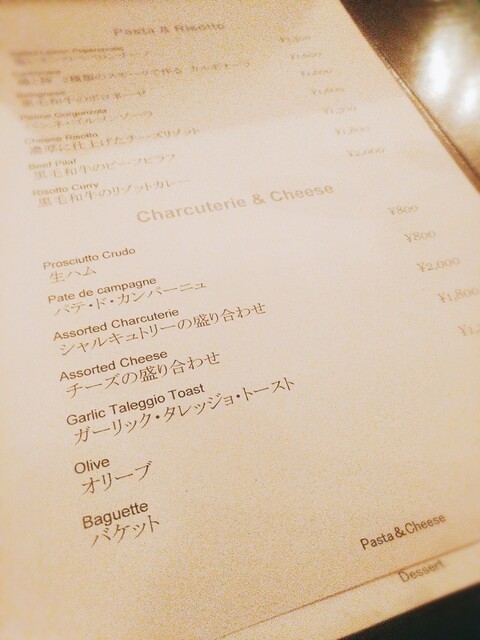 Pasta & Risotto
¥1,600
黒毛和牛のボロネーゼ
Penne Gorgonzola
ペンネ・ゴルゴンゾーラ
Cheese Risotto
濃厚に仕上げたチーズリゾット
Beef Pilaf
黒毛和牛のビーフピラフ
¥1,800
Risotto Curry
黒毛和牛のリゾットカレー
¥2,000
Charcuterie & Cheese
Prosciutto Crudo
生ハム
¥800
Pate de campagne
パテ・ド・カンパーニュ
¥800
Assorted Charcuterie
シャルキュトリーの盛り合わせ
¥2,000
Assorted Cheese
チーズの盛り合わせ
¥1,800
Garlic Taleggio Toast
ガーリック・タレッジョ・トースト
Olive
オリーブ
Baguette
バケット
Pasta & Cheese
Dessert